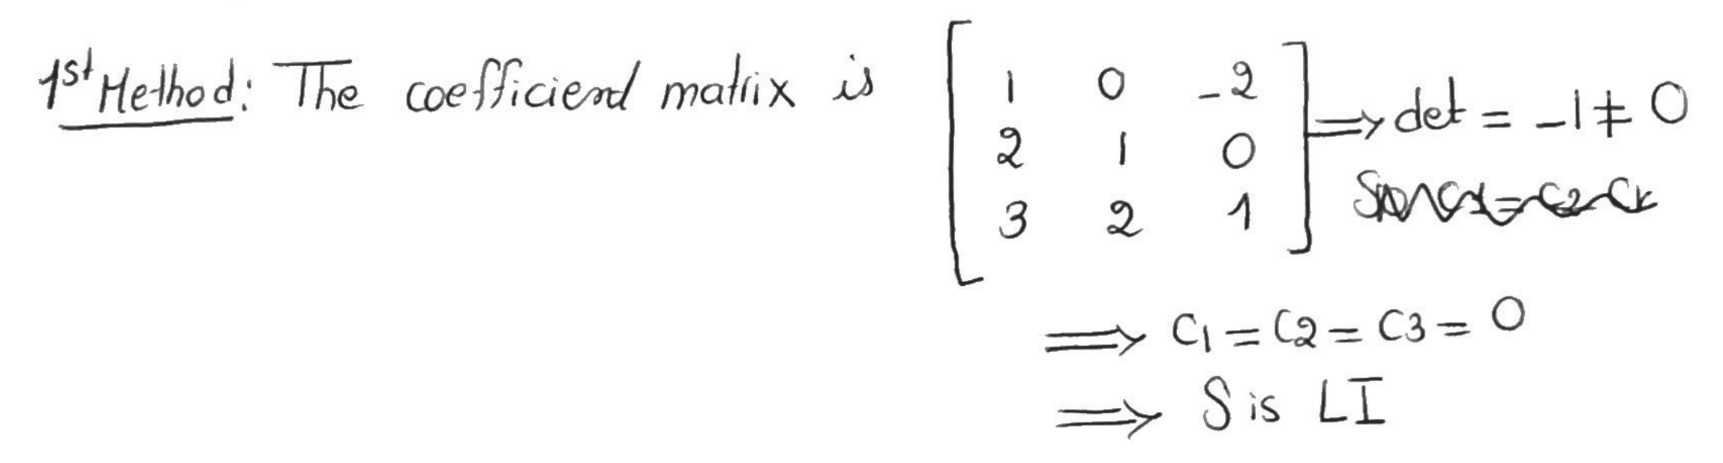 1st Method: The coefficient matrix is [ 1 0 -2 ⇒ det = -1 ≠ 0
2 1 0
3 2 1 ]
⇒ C1 = C2 = C3 = 0
⇒ S is LI